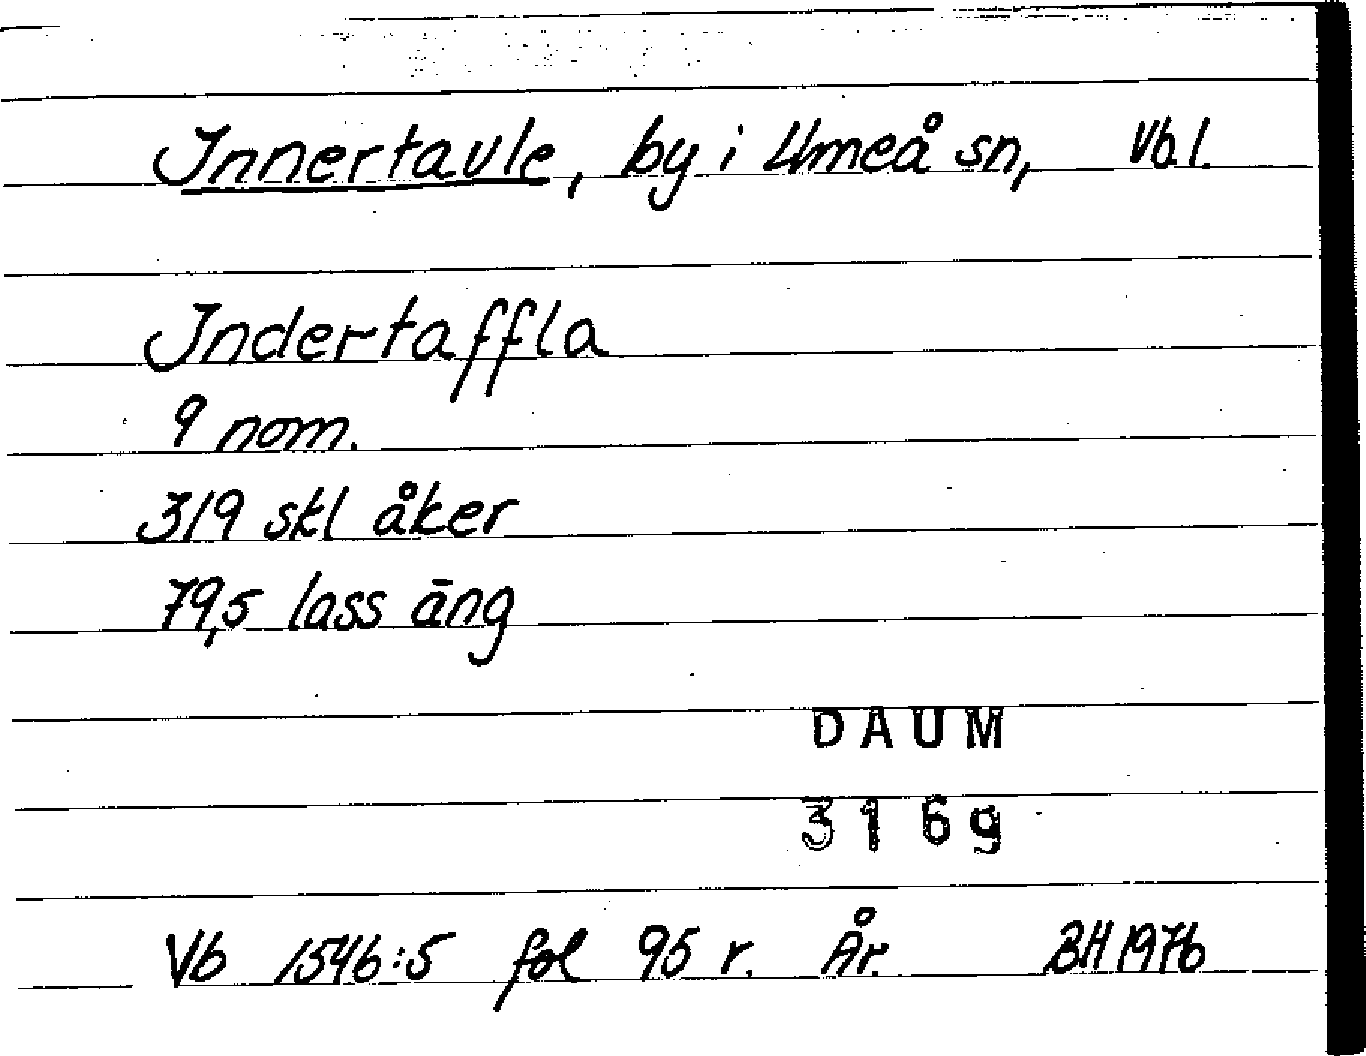 Innertavle, by i Umeå sn, Vb l.
Indertaffla
9 nom.
319 skl åker
79,5 lass äng
DAUM
3169
Vb 1546:5 fol 95 r. År. BH 1976